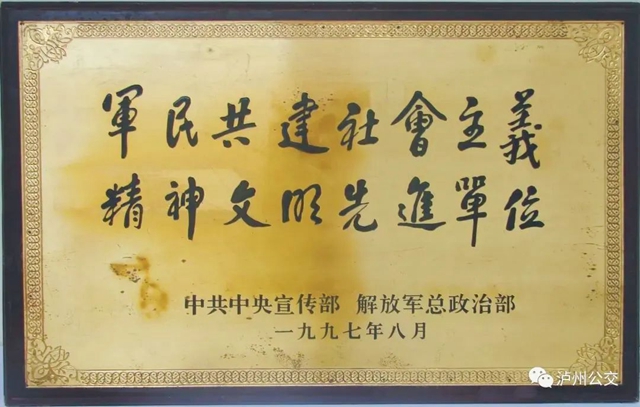 軍民共建社會主義
精神文明先進單位
中共中央宣传部 解放军总政治部
一九九七年八月
泸州公交